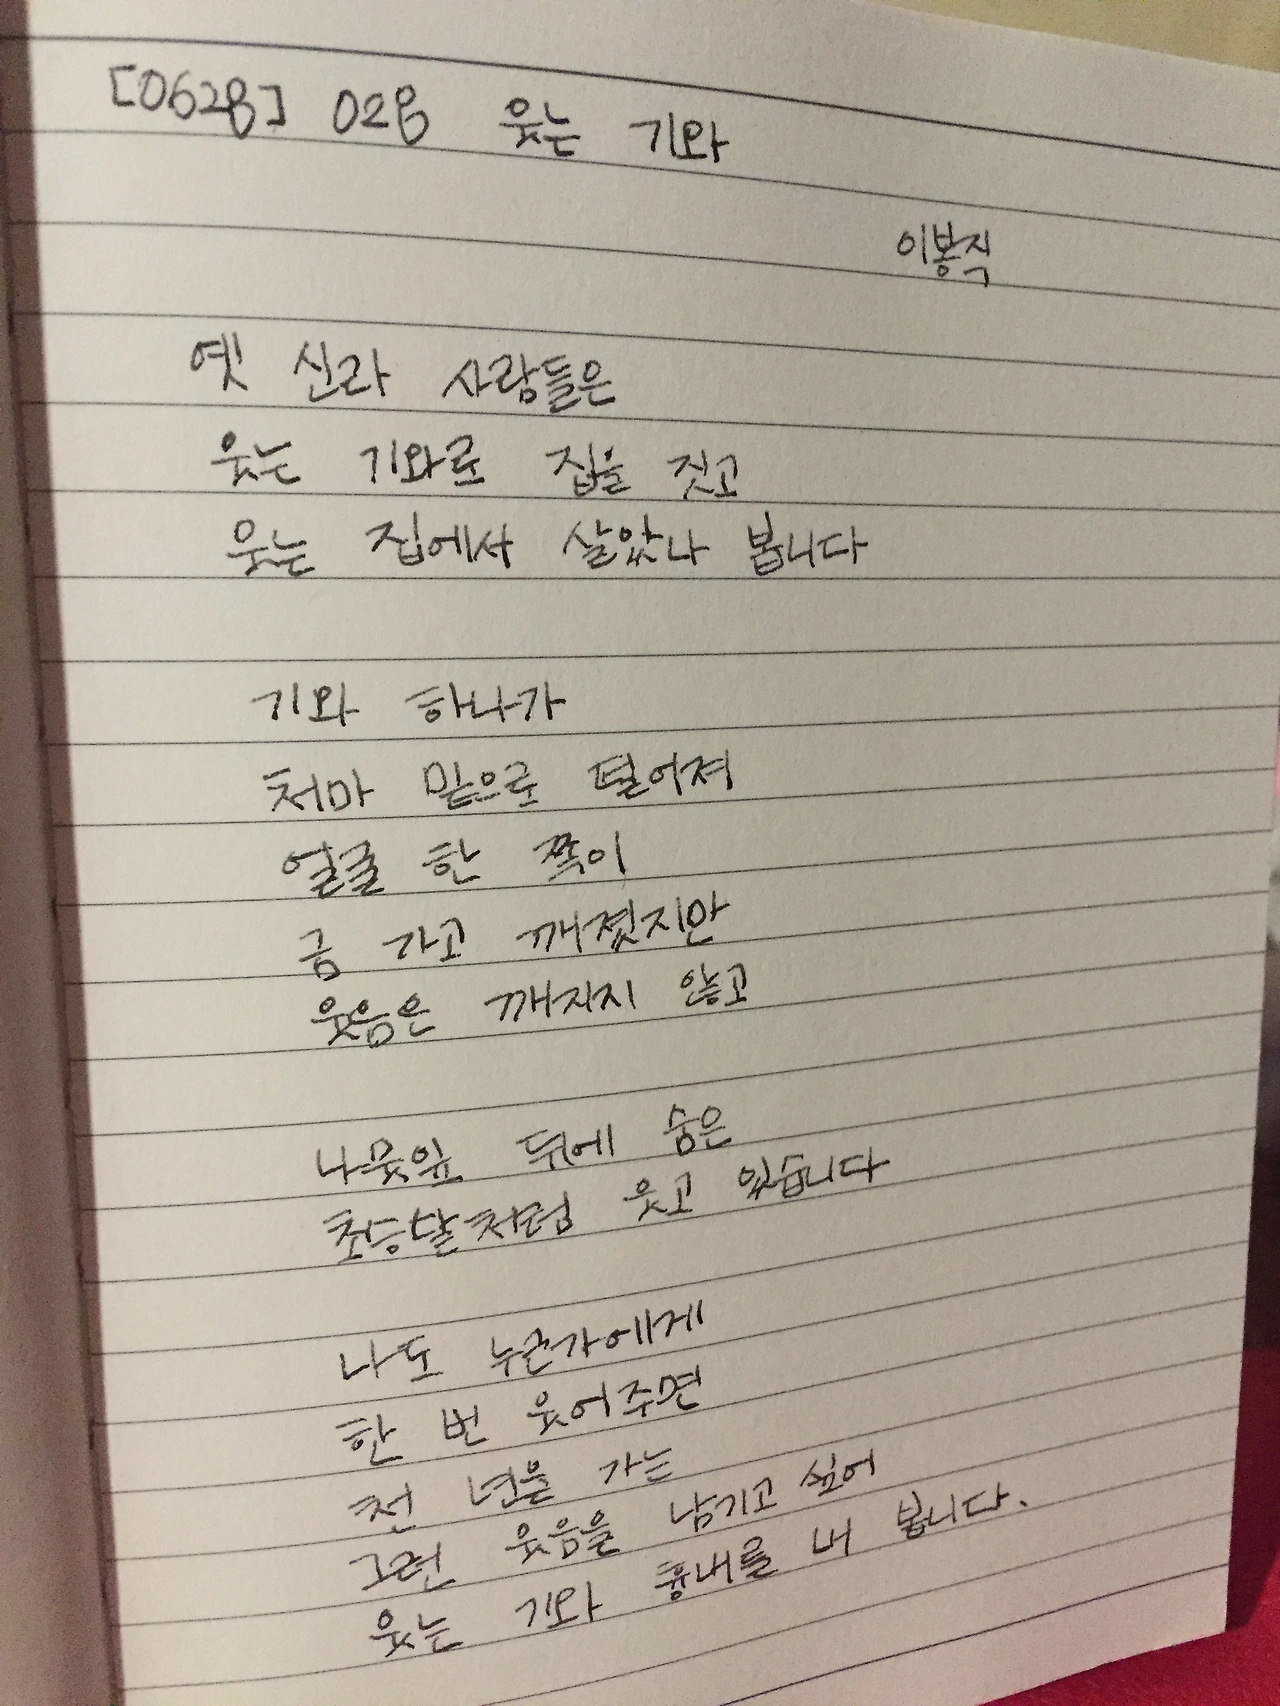 [0628] 028 웃는 기와
이봉직
옛 신라 사람들은
웃는 기와로 집을 짓고
웃는 집에서 살았나 봅니다
기와 하나가
처마 밑으로 떨어져
얼굴 한 쪽이
금 가고 깨졌지만
웃음은 깨지지 않고
나뭇잎 뒤에 숨은
초승달처럼 웃고 있습니다
나도 누군가에게
한 번 웃어주면
천 년을 가는
그런 웃음을 남기고 싶어
웃는 기와 흉내를 내 봅니다.